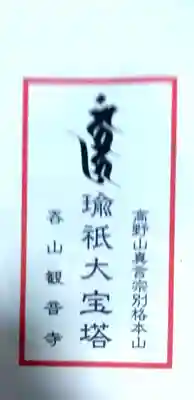 高野山真言宗別格本山
瑜祇大宝塔
吾山観音寺